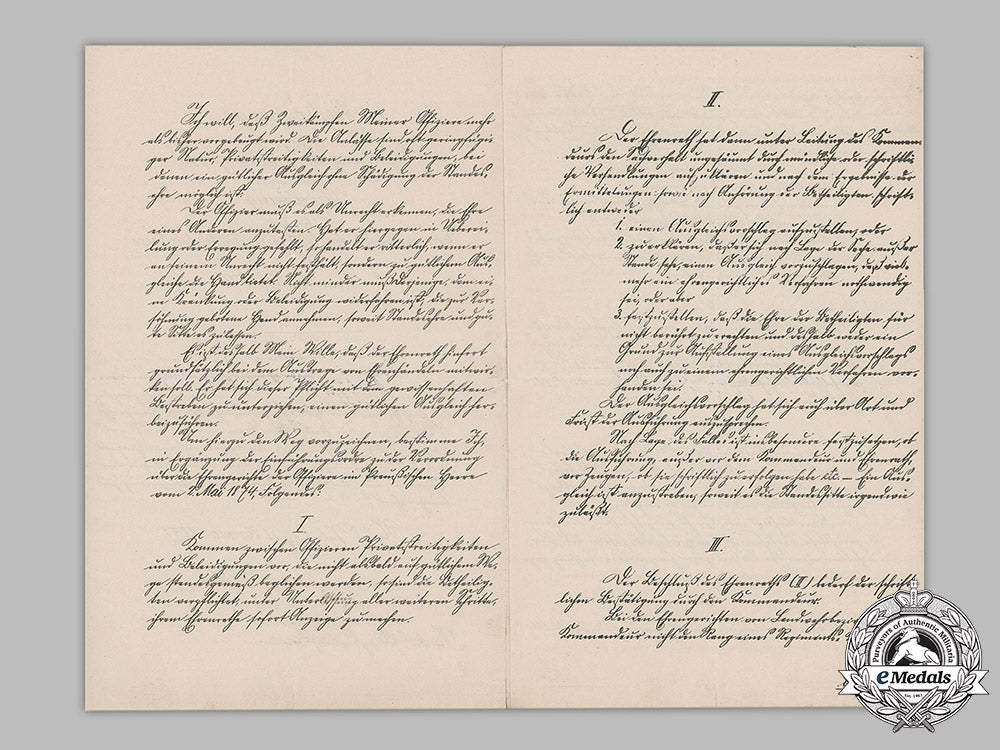 Ich will, daß Zweikämpfen Meiner Offiziere mehr
als bisher vorgebeugt wird. Die Anlässe sind oft geringfügi-
ger Natur, Privatstreitigkeiten und Beleidigungen, bei
denen ein gütlicher Ausgleich ohne Schädigung der Standes-
ehre möglich ist.
Der Offizier muß es als Unrecht erkennen, die Ehre
eines Anderen anzutasten. Hat er hiergegen in Ueberei-
lung oder Erregung gefehlt, so handelt er ritterlich, wenn er
an seinem Unrecht nicht festhält, sondern zu gütlichem Aus-
gleiche die Hand bietet. Nicht minder muß Derjenige, dem ei-
ne Kränkung oder Beleidigung widerfahren ist, die zur Ver-
söhnung gebotene Hand annehmen, soweit Standesehre und gu-
te Sitte es zulassen.
Es ist deshalb Mein Wille, daß der Ehrenrath hinfort
grundsätzlich bei dem Austrage von Ehrenhändeln mitwir-
ken soll. Er hat sich dieser Pflicht mit dem gewissenhaften
Bestreben zu unterziehen, einen gütlichen Ausgleich her-
beizuführen.
Um hierzu den Weg vorzuzeichnen, bestimme Ich,
in Ergänzung der Einführungsordre zu der Verordnung
über die Ehrengerichte der Offiziere im Preußischen Heere
vom 2. Mai 1874, Folgendes:
I.
Kommen zwischen Offizieren Privatstreitigkeiten
und Beleidigungen vor, die nicht alsbald auf gütlichem We-
ge standesgemäß beglichen werden, so sind die Betheilig-
ten verpflichtet, unter Unterlassung aller weiteren Schritte,
ihrem Ehrenrathe sofort Anzeige zu machen.
II.
Der Ehrenrath hat dann unter Leitung des Komman-
deurs den Sachverhalt ungesäumt durch mündliche oder schriftli-
che Verhandlungen aufzuklären und nach dem Ergebnisse der
Ermittelungen sowie nach Anhörung der Betheiligten schrift-
lich entweder
1. einen Ausgleichsvorschlag aufzustellen, oder
2. zu erklären, daß er sich nach Lage der Sache außer
Stande sehe, einen Ausgleich vorzuschlagen, daß viel-
mehr ein ehrengerichtliches Verfahren nothwendig
sei, oder aber
3. festzustellen, daß die Ehre der Betheiligten für
nicht berührt zu erachten und deshalb weder ein
Grund zur Aufstellung eines Ausgleichsvorschlags
noch auch zu einem ehrengerichtlichen Verfahren vor-
handen sei.
Der Ausgleichsvorschlag hat sich auch über Art und
Frist der Ausführung auszusprechen.
Nach Lage des Falles ist insbesondere festzusetzen, ob
die Ausführung, außer vor dem Kommandeur und Ehrenrath,
vor Zeugen, ob sie schriftlich zu erfolgen habe etc. – Ein Aus-
gleich ist anzustreben, soweit es die Standessitte irgendwie
zuläßt.
III.
Der Beschluß des Ehrenraths (II) bedarf der schrift-
lichen Bestätigung durch den Kommandeur.
Bei den Ehrengerichten von Landwehrbezir
Kommandeur nicht den Rang eines Regiments
Purveyors of Authentic Militaria
eMedals